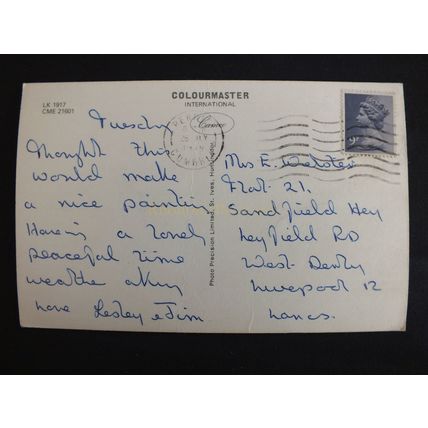 COLOURMASTER
INTERNATIONAL
LK 1917
CME 21601
Cameo
PEN
CUMBRIA
9P
Tuesday
Thought this
would make
a nice painting
Having a lovely
peaceful time
weather
love Lesley & Jim
Photo Precision Limited, St. Ives, Huntingdon
Mrs E. Webster
Flat 21.
Sandfield Hey
Leyfield RD
West Derby
Liverpool 12
Lancs.